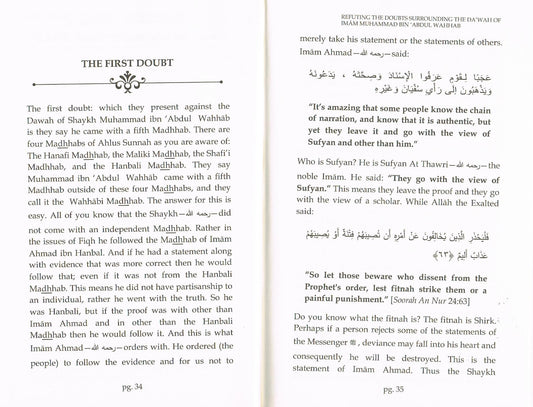 THE FIRST DOUBT
The first doubt: which they present against the
Dawah of Shaykh Muhammad ibn 'Abdul Wahhāb
is they say he came with a fifth Madhhab. There are
four Madhhabs of Ahlus Sunnah as you are aware of:
The Hanafi Madhhab, the Maliki Madhhab, the Shafi'i
Madhhab, and the Hanbali Madhhab. They say
Muhammad ibn 'Abdul Wahhāb came with a fifth
Madhhab outside of these four Madhhabs, and they
call it the Wahhābi Madhhab. The answer for this is
easy. All of you know that the Shaykh—رحمه الله—did
not come with an independent Madhhab. Rather in
the issues of Fiqh he followed the Madhhab of Imām
Ahmad ibn Hanbal. And if he had a statement along
with evidence that was more correct then he would
follow that; even if it was not from the Hanbali
Madhhab. This means he did not have partisanship to
an individual, rather he went with the truth. So he
was Hanbali, but if the proof was with other than
Imām Ahmad and in other than the Hanbali
Madhhab then he would follow it. And this is what
Imām Ahmad—رحمه الله—orders with. He ordered (the
people) to follow the evidence and for us not to
pg. 34
REFUTING THE DOUBTS SURROUNDING THE DA'WAH OF
IMĀM MUHAMMAD BIN 'ABDUL WAHHAB
merely take his statement or the statements of others.
Imām Ahmad—رحمه الله—said:
عَجَبًا لِقَوْمٍ عَرَفُوا الْإِسْنَادَ وَصِحَّتَهُ ، يَدَعُونَهُ
وَيَذْهَبُونَ إِلَى رَأْيِ سُفْيَانَ وَغَيْرِهِ
"It's amazing that some people know the chain
of narration, and know that it is authentic, but
yet they leave it and go with the view of
Sufyan and other than him."
Who is Sufyan? He is Sufyan At Thawri—رحمه الله—the
noble Imām. He said: "They go with the view of
Sufyan." This means they leave the proof and they go
with the view of a scholar. While Allāh the Exalted
said:
فَلْيَحْذَرِ الَّذِينَ يُخَالِفُونَ عَنْ أَمْرِهِ أَن تُصِيبَهُمْ فِتْنَةٌ أَوْ يُصِيبَهُمْ
عَذَابٌ أَلِيمٌ ﴿٦٣﴾
"So let those beware who dissent from the
Prophet's order, lest fitnah strike them or a
painful punishment." [Soorah An Nur 24:63]
Do you know what the fitnah is? The fitnah is Shirk.
Perhaps if a person rejects some of the statements of
the Messenger ﷺ, deviance may fall into his heart and
consequently he will be destroyed. This is the
statement of Imām Ahmad. Thus the Shaykh
pg. 35